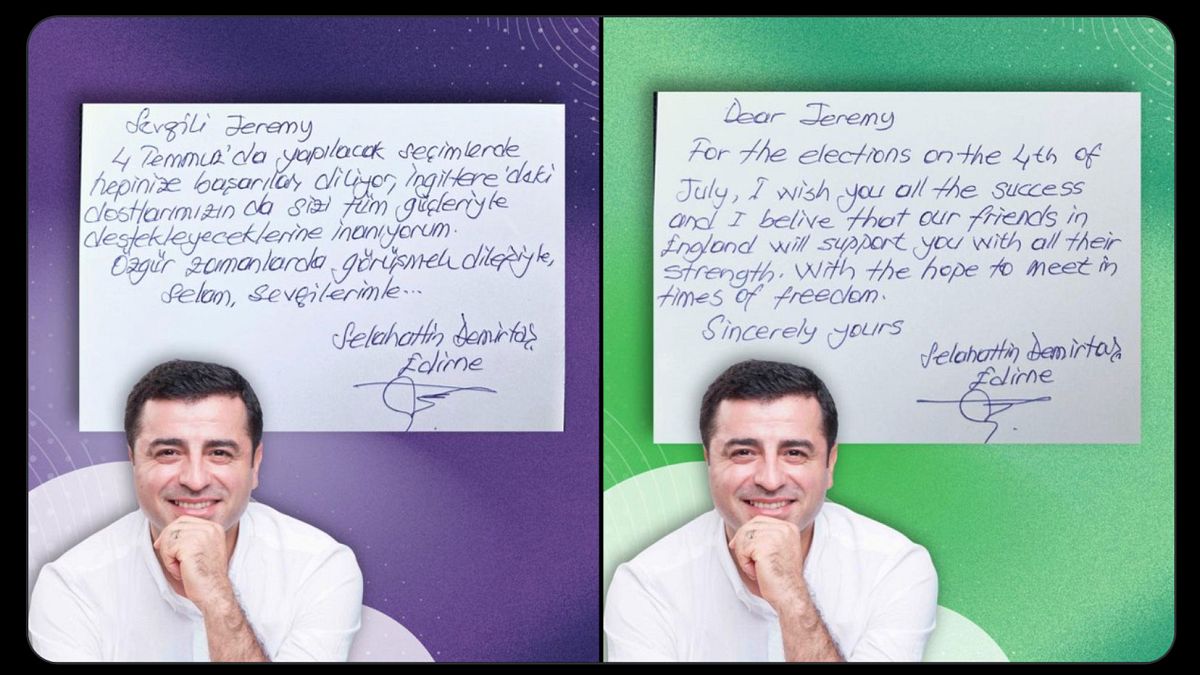 Sevgili Jeremy
4 Temmuz'da yapılacak seçimlerde
hepinize başarılar diliyor, İngiltere'deki
dostlarımızın da sizi tüm güçleriyle
destekleyeceklerine inanıyorum.
Özgür zamanlarda görüşmek dileğiyle,
selam, sevgilerimle...
Selahattin Demirtaş
Edirne
Dear Jeremy
For the elections on the 4th of
July, I wish you all the success
and I belive that our friends in
England will support you with all their
strength. With the hope to meet in
times of freedom.
Sincerely yours
Selahattin Demirtaş
Edirne